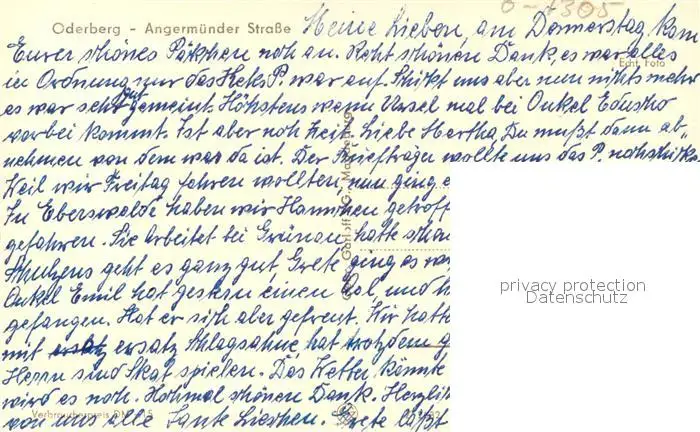 o-1305
Oderberg - Angermünder Straße
Meine Lieben, am Donnerstag kam
Eurer schönes Päkchen noch an. Recht schönen Dank, es war alles
Echt Foto
in Ordnung nur das Keks P. war auf. Schikt uns aber nun nichts mehr
es war sehr gut gemeint. Höhstens wenn Ursel mal bei Onkel Eduscho
vorbei kommt. Ist aber noch Zeit. Liebe Hertha, Du mußt dann ab-
nehmen von dem was da ist. Der Briefträger wollte uns das P. nachschiken
Weil wir Freitag fahren wollten, nun ging e
In Eberswalde haben wir Hannchen getroff
gefahren. Sie Arbeitet bei Grünau, hatte schon
Schulzens geht es ganz gut, Grete ging es
Onkel Emil hat gestern einen Aal, und
gefangen. Hat er sich aber gefreut. Wir hatte
mit ersatz Schlagsahne hat trotzdem g
Herrn sind Skat spielen. Das Wetter könnte
wird es noch. Nohmal schönen Dank. Herzlich
von uns alle Tante Lieschen. Grete läßt
Verbraucherpreis DM
privacy protection
Datenschutz